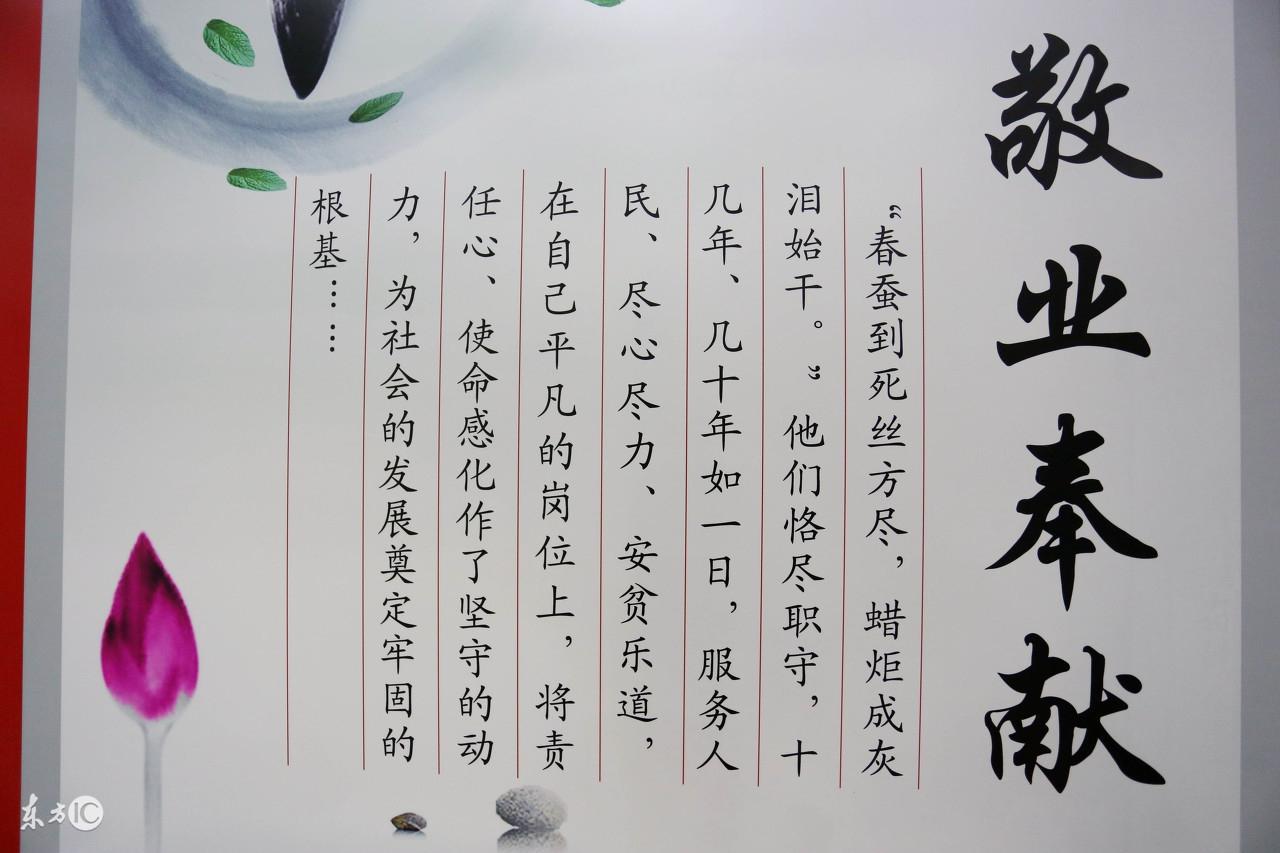 敬业奉献
“春蚕到死丝方尽，蜡炬成灰
泪始干。”他们恪尽职守，十
几年、几十年如一日，服务人
民、尽心尽力、安贫乐道，
在自己平凡的岗位上，将责
任心、使命感化作了坚守的动
力，为社会的发展奠定牢固的
根基……
东方IC